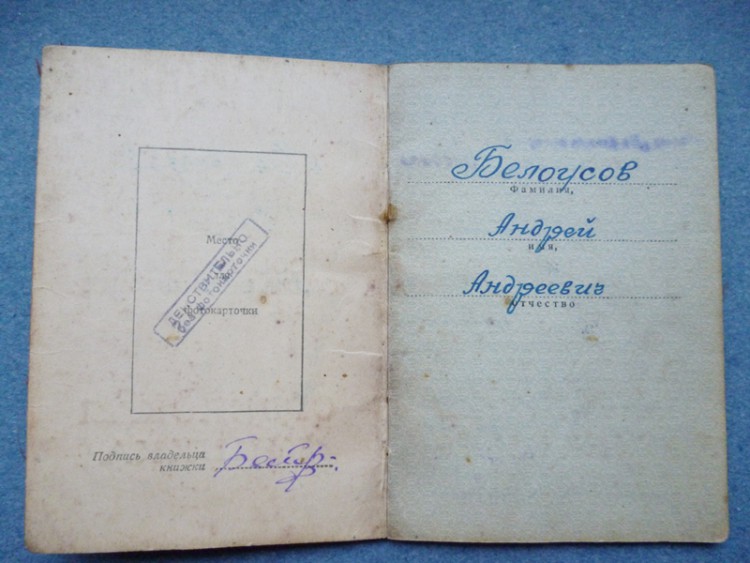 Место
для
фотокарточки
ДЕЙСТВИТЕЛЬНО
без фотокарточки
Подпись владельца
книжки
Белоусов
Фамилия,
Андрей
имя,
Андреевич
отчество